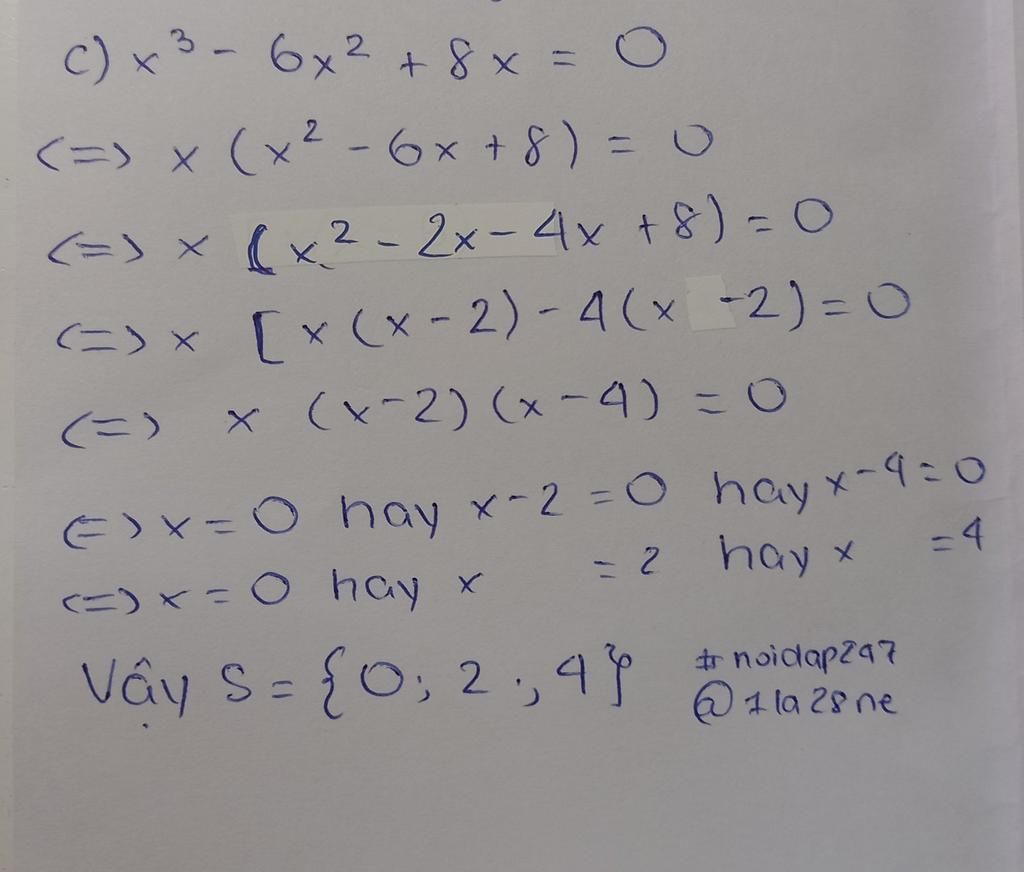 c) x³ - 6x² + 8x = 0
<=> x (x² - 6x + 8) = 0
<=> x (x² - 2x - 4x + 8) = 0
<=> x [x(x - 2) - 4(x - 2) = 0
<=> x (x - 2) (x - 4) = 0
<=> x = 0 hay x - 2 = 0 hay x - 4 = 0
<=> x = 0 hay x = 2 hay x = 4
Vậy S = {0; 2; 4}
#noidap247
@1la28ne